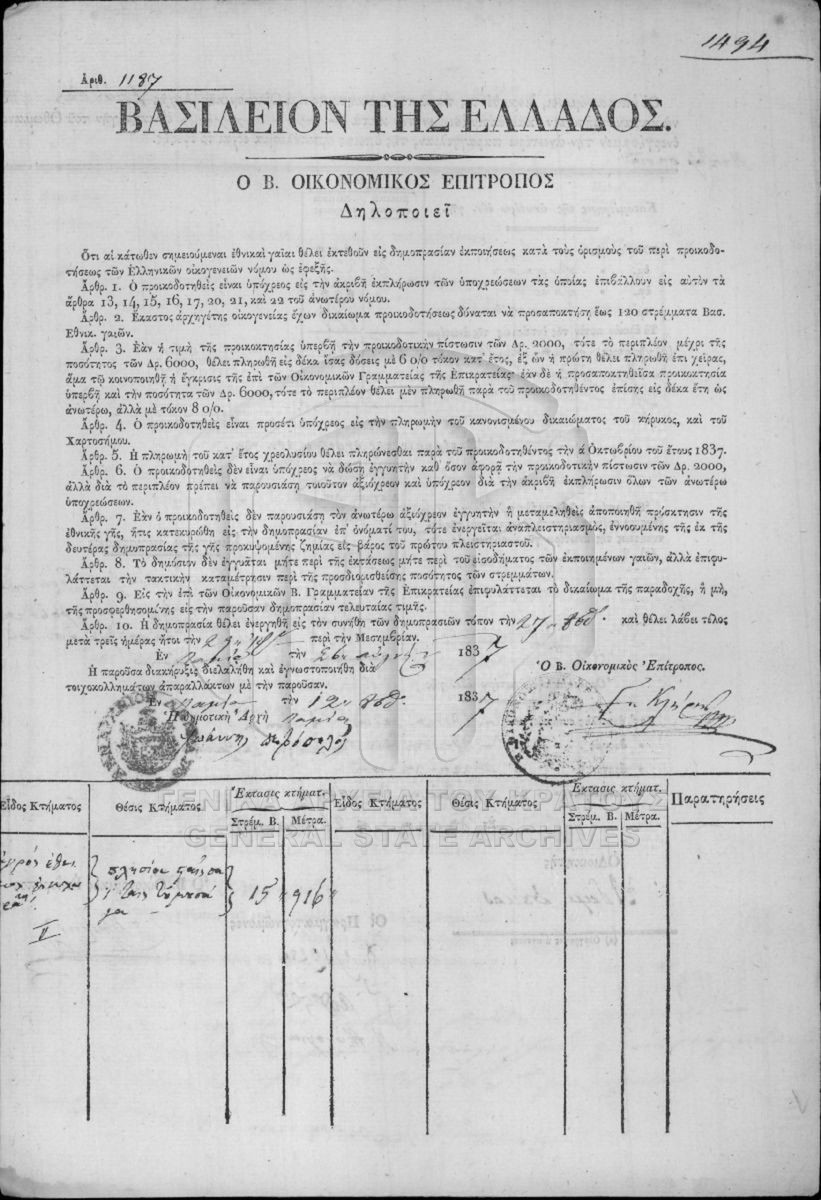 1494
Ἀριθ. 1187
ΒΑΣΙΛΕΙΟΝ ΤΗΣ ΕΛΛΑΔΟΣ.
Ο Β. ΟΙΚΟΝΟΜΙΚΟΣ ΕΠΙΤΡΟΠΟΣ
Δηλοποιεῖ
Ὅτι αἱ κάτωθεν σημειούμεναι ἐθνικαὶ γαῖαι θέλει ἐκτεθοῦν εἰς δημοπρασίαν ἐκποιήσεως κατὰ τοὺς ὁρισμοὺς τοῦ περὶ προικοδο-
τήσεως τῶν Ἑλληνικῶν οἰκογενειῶν νόμου ὡς ἐφεξῆς.
Ἄρθρ. 1. Ὁ προικοδοτηθεὶς εἶναι ὑπόχρεος εἰς τὴν ἀκριβῆ ἐκπλήρωσιν τῶν ὑποχρεώσεων τὰς ὁποίας ἐπιβάλλουν εἰς αὐτὸν τὰ
ἄρθρα 13, 14, 15, 16, 17, 20, 21, καὶ 22 τοῦ ἀνωτέρω νόμου.
Ἄρθρ. 2. Ἕκαστος ἀρχηγέτης οἰκογενείας ἔχων δικαίωμα προικοδοτήσεως δύναται νὰ προσαποκτήσῃ ἕως 120 στρέμματα Βασ.
Ἐθνικ. γαιῶν.
Ἄρθρ. 3. Ἐὰν ἡ τιμὴ τῆς προικοκτησίας ὑπερβῇ τὴν προικοδοτικὴν πίστωσιν τῶν Δρ. 2000, τότε τὸ περιπλέον μέχρι τῆς
ποσότητος τῶν Δρ. 6000, θέλει πληρωθῆ εἰς δέκα ἴσας δόσεις μὲ 6 0/0 τόκον κατ' ἔτος, ἐξ ὧν ἡ πρώτη θέλει πληρωθῆ ἐπὶ χεῖρας,
ἅμα τῷ κοινοποιηθῇ ἡ ἔγκρισις τῆς ἐπὶ τῶν Οἰκονομικῶν Γραμματείας τῆς Ἐπικρατείας· ἐὰν δὲ ἡ προσαποκτηθεῖσα προικοκτησία
ὑπερβῇ καὶ τὴν ποσότητα τῶν Δρ. 6000, τότε τὸ περιπλέον θέλει μὲν πληρωθῆ παρὰ τοῦ προικοδοτηθέντος ἐπίσης εἰς δέκα ἔτη ὡς
ἀνωτέρω, ἀλλὰ μὲ τόκον 8 0/0.
Ἄρθρ. 4. Ὁ προικοδοτηθεὶς εἶναι προσέτι ὑπόχρεος εἰς τὴν πληρωμὴν τοῦ κανονισμένου δικαιώματος τοῦ κήρυκος, καὶ τοῦ
Χαρτοσήμου.
Ἄρθρ. 5. Ἡ πληρωμὴ τοῦ κατ' ἔτος χρεολυσίου θέλει πληρώνεσθαι παρὰ τοῦ προικοδοτηθέντος τὴν ά Ὀκτωβρίου τοῦ ἔτους 1837.
Ἄρθρ. 6. Ὁ προικοδοτηθεὶς δὲν εἶναι ὑπόχρεος νὰ δώσῃ ἐγγυητὴν καθ' ὅσον ἀφορᾷ τὴν προικοδοτικὴν πίστωσιν τῶν Δρ. 2000,
ἀλλὰ διὰ τὸ περιπλέον πρέπει νὰ παρουσιάσῃ τοιοῦτον ἀξιόχρεον καὶ ὑπόχρεον διὰ τὴν ἀκριβῆ ἐκπλήρωσιν ὅλων τῶν ἀνωτέρω
ὑποχρεώσεων.
Ἄρθρ. 7. Ἐὰν ὁ προικοδοτηθεὶς δὲν παρουσιάσῃ τὸν ἀνωτέρω ἀξιόχρεον ἐγγυητὴν ἢ μεταμεληθεὶς ἀποποιηθῇ πρόσκτησιν τῆς
ἐθνικῆς γῆς, ἥτις κατεκυρώθη εἰς τὴν δημοπρασίαν ἐπ' ὀνόματί του, τότε ἐνεργεῖται ἀναπλειστηριασμὸς, ἐννοουμένης τῆς ἐκ τῆς
δευτέρας δημοπρασίας τῆς γῆς προκυψομένης ζημίας εἰς βάρος τοῦ πρώτου πλειστηριαστοῦ.
Ἄρθρ. 8. Τὸ δημόσιον δὲν ἐγγυᾶται μήτε περὶ τῆς ἐκτάσεως μήτε περὶ τοῦ εἰσοδήματος τῶν ἐκποιημένων γαιῶν, ἀλλὰ ἐπιφυ-
λάττεται τὴν τακτικὴν καταμέτρησιν περὶ τῆς προσδιορισθείσης ποσότητος τῶν στρεμμάτων.
Ἄρθρ. 9. Εἰς τὴν ἐπὶ τῶν Οἰκονομικῶν Β. Γραμματείαν τῆς Ἐπικρατείας ἐπιφυλάττεται τὸ δικαίωμα τῆς παραδοχῆς, ἢ μὴ,
τῆς προσφερθησομένης εἰς τὴν παροῦσαν δημοπρασίαν τελευταίας τιμῆς.
Ἄρθρ. 10. Ἡ δημοπρασία θέλει ἐνεργηθῆ εἰς τὸν συνήθη τῶν δημοπρασιῶν τόπον τὴν 27 καὶ θέλει λάβει τέλος
μετὰ τρεῖς ἡμέρας ἤτοι τὴν 29 περὶ τὴν Μεσημβρίαν.
Ἐν Λαμίᾳ τὴν 1837
Ὁ Β. Οἰκονομικὸς Ἐπίτροπος.
Ἡ παροῦσα διακήρυξις διελαλήθη καὶ ἐγνωστοποιήθη διὰ
τοιχοκολλημάτων ἀπαραλλάκτων μὲ τὴν παροῦσαν.
Ἐν Λαμίᾳ τὴν 12 1837
Ἡ Δημοτικὴ Ἀρχὴ Λαμίας
Ἰωάννης
ΓΕΝΙΚΑ ΑΡΧΕΙΑ ΤΟΥ ΚΡΑΤΟΥΣ
GENERAL STATE ARCHIVES
Εἶδος Κτήματος Θέσις Κτήματος Ἔκτασις κτήματ. Εἶδος Κτήματος Θέσις Κτήματος Ἔκτασις κτήματ. Παρατηρήσεις
Στρέμ. Β. Μέτρα. Στρέμ. Β. Μέτρα.
πλησίον
15 " 916 "
II